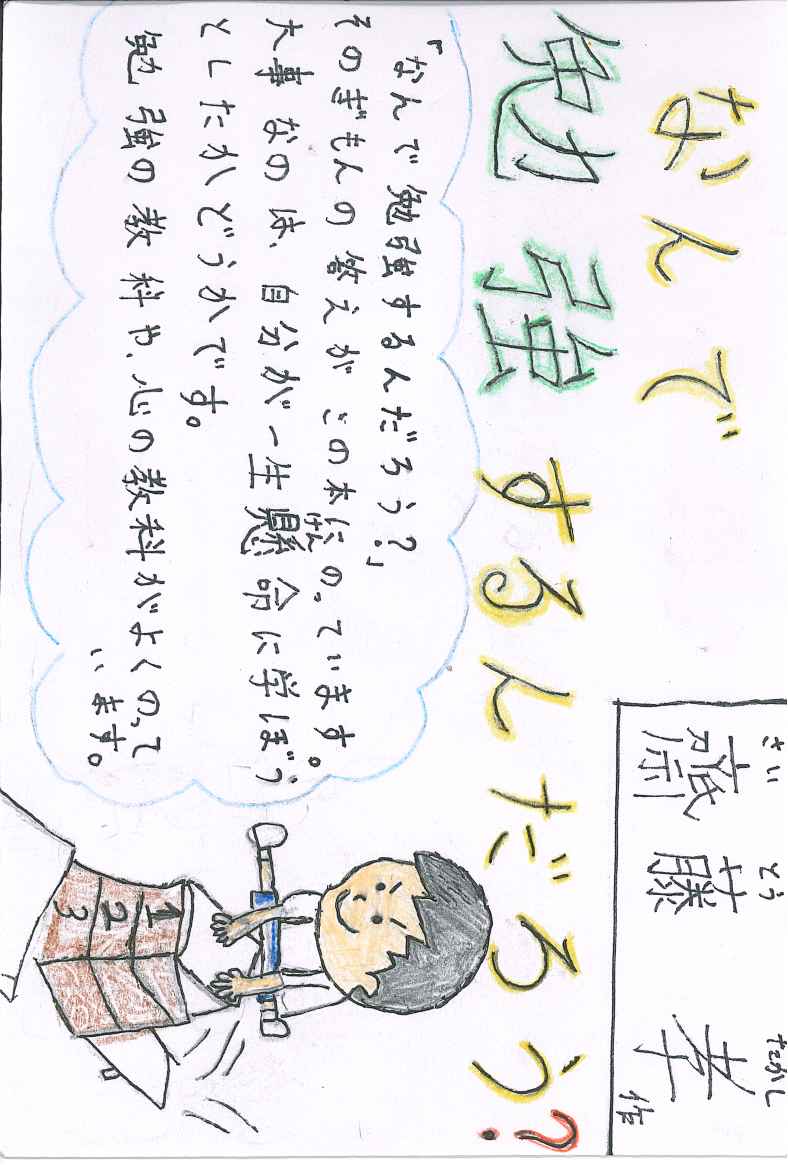 なんで
勉強するんだろう?
さい とう たかし
齋藤 孝 作
「なんで勉強するんだろう?」
そのぎもんの答えがこの本にのっています。
けん
大事なのは、自分が一生懸命に学ぼう
としたかどうかです。
勉強の教科や、心の教科がよくのって
います。
1
2
3